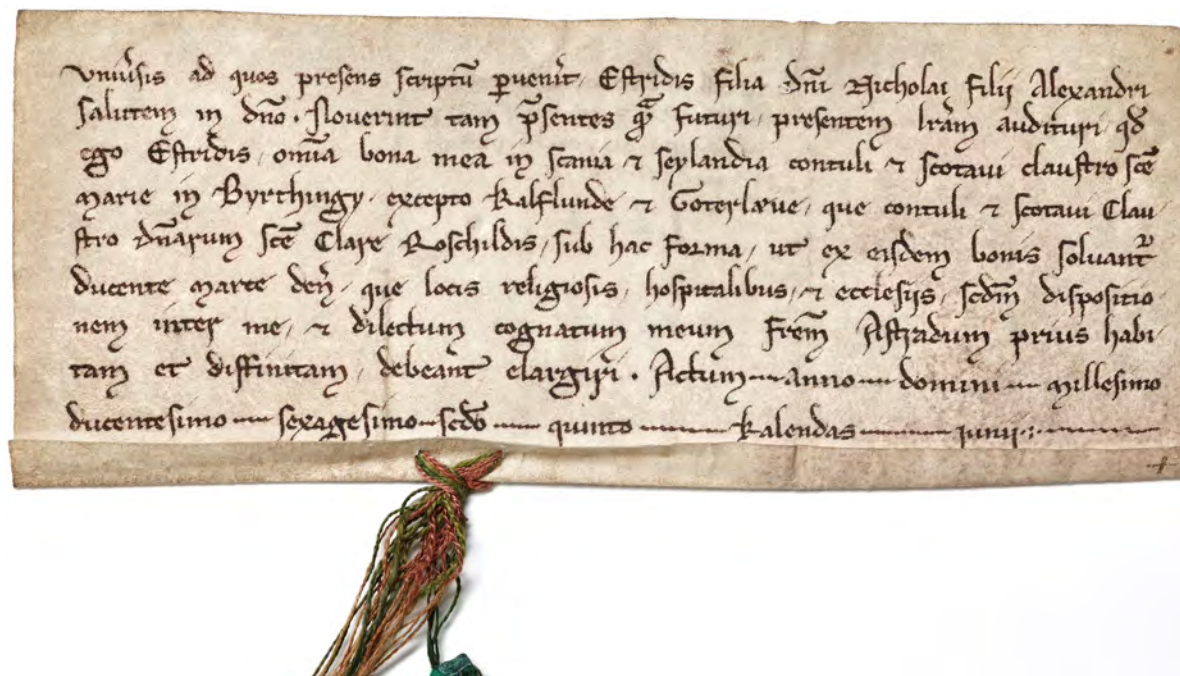 Vniu̾sis ad quos presens scriptū ꝑuenīt. Estridis filia dn̄i Nicholai filij Alexandri
salutem in dn̄o. Nouerint tam p̄sentes qᷓ futuri, presentem lr̄am audituri, qđ
ego Estridis, om̄ia bona mea in scania ⁊ seylandia contuli ⁊ scotaui claustro sc̄e
marie in Byrthingy, excepto Kalflunde ⁊ Goterlæue, que contuli ⁊ scotaui Clau
stro dn̄arum sc̄e Clare Roschildis, sub hac forma, ut ex eisdem bonis soluant᷑
ducente marce den̄, que locis religiosis, hospitalibus, ⁊ ecclesijs, scd̄m dispositio
nem inter me, ⁊ dilectum cognatum meum fr̄em Astradum prius habi
tam et diffinitam, debeant elargiri. Actum anno domini millesimo
ducentesimo sexagesimo scd̄o quinto kalendas iunij: